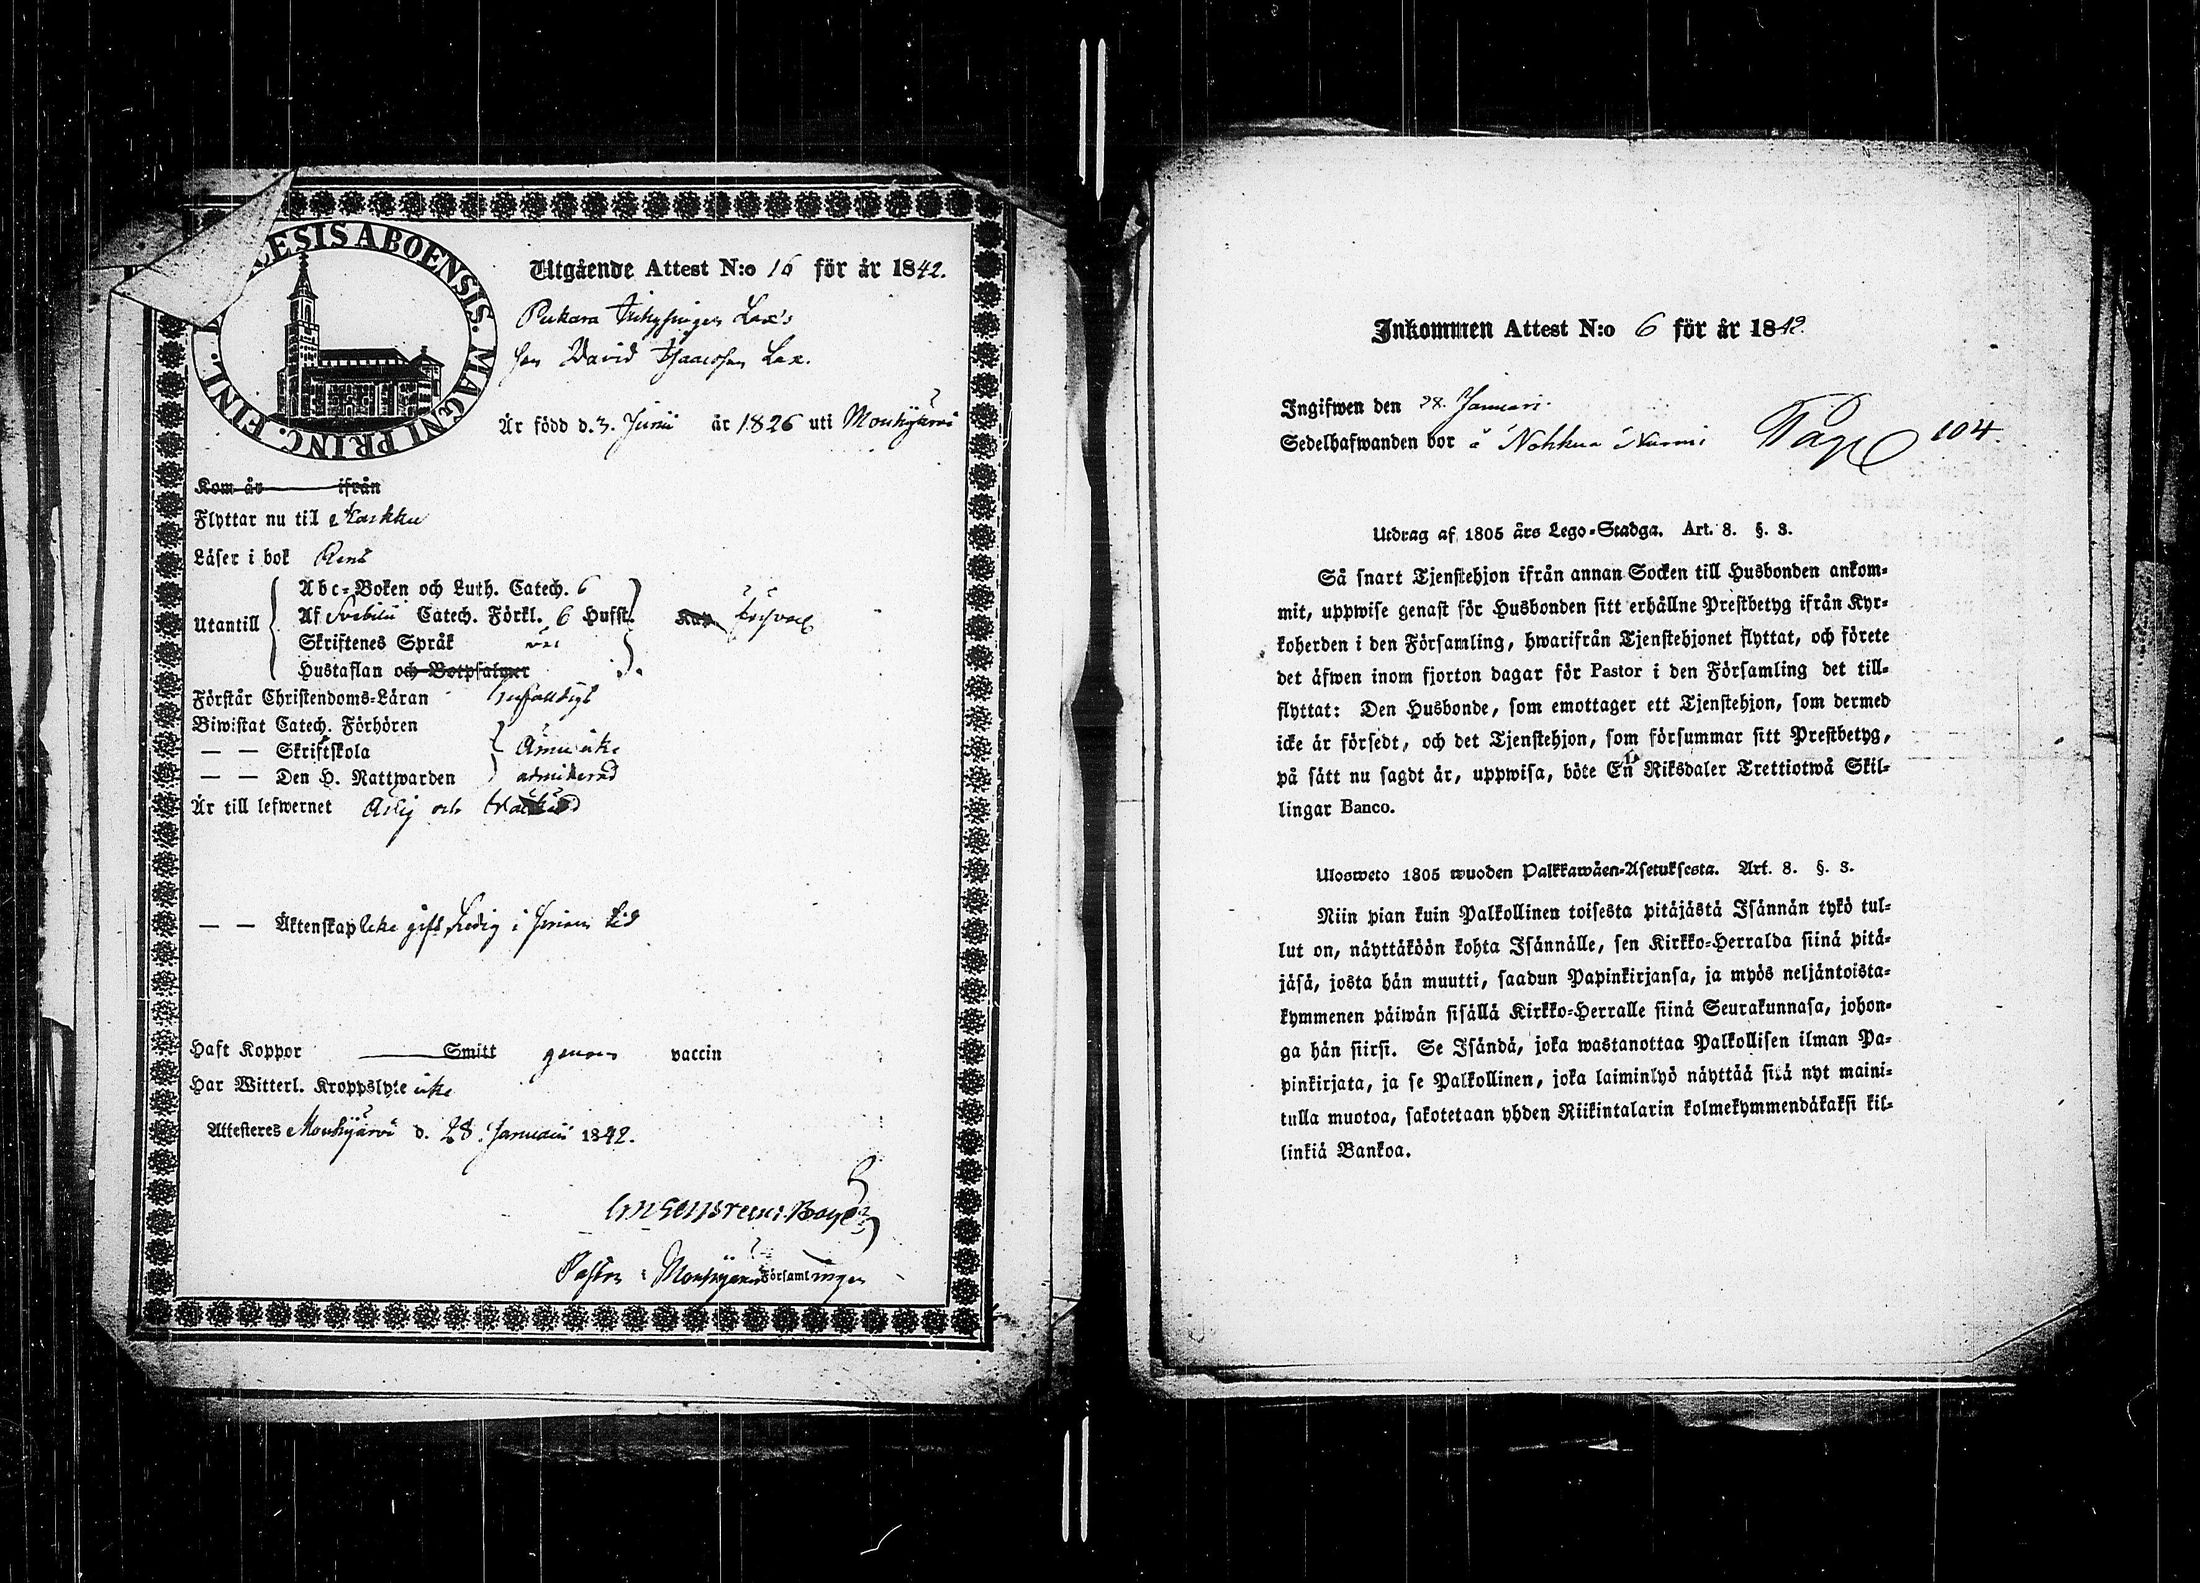 ESIS ABOENSIS. MAGNI PRINC. FINL.
Utgående Attest N:o 16 för år 1842.
Pukara Inhysingen Lax's
son David Isaacsson Lax.
Är född d. 3. Junii år 1826 uti Mouhijärvi
Kom år ifrån
Flyttar nu til Karkku
Läser i bok Rent
Utantill
Abc-Boken och Luth. Catech. 6
Af Svebilii Catech. Förkl. 6 Hufst.
Skriftenes Språk
Hustaflan och Botpsalmer
Förstår Christendoms-Läran Enfaldigt
Biwistat Catech. Förhören
— — Skriftskola Ännu icke
— — Den H. Nattwarden admitterad
Är till lefwernet Ärlig och
— — Äktenskap Icke gift, Ledig i sinom tid
Haft Koppor Smitt genom vaccin
Har Witterl. Kroppslyte icke
Attesteres Mouhijärvi d. 28. Januarii 1842.
Pastor i Mouhijärvi Församlingen
Inkommen Attest N:o 6 för år 1842.
Ingifwen den 28. Januari.
Sedelhafwanden bor å Nohkua Nurmi Pag 104.
Utdrag af 1805 års Lego-Stadga. Art. 8. §. 3.
Så snart Tjenstehjon ifrån annan Socken till Husbonden ankom-
mit, uppwise genast för Husbonden sitt erhållne Prestbetyg ifrån Kyr-
koherden i den Församling, hwarifrån Tjenstehjonet flyttat, och förete
det äfwen inom fjorton dagar för Pastor i den Församling det till-
flyttat: Den Husbonde, som emottager ett Tjenstehjon, som dermed
icke är försedt, och det Tjenstehjon, som försummar sitt Prestbetyg,
på sätt nu sagdt är, uppwisa, böte En Riksdaler Trettiotwå Skil-
lingar Banco.
Ulosweto 1805 wuoden Palkkawäen-Asetuksesta. Art. 8. §. 3.
Niin pian kuin Palkollinen toisesta pitäjästä Isännän tykö tul-
lut on, näyttäköön kohta Isännälle, sen Kirkko-Herralda siinä pitä-
jäsä, josta hän muutti, saadun Papinkirjansa, ja myös neljäntoista-
kymmenen päiwän sisällä Kirkko-Herralle siinä Seurakunnasa, johon-
ga hän siirsi. Se Isändä, joka wastanottaa Palkollisen ilman Pa-
pinkirjata, ja se Palkollinen, joka laiminlyö näyttää sitä nyt maini-
tulla muotoa, sakotetaan yhden Riikintalarin kolmekymmendäkaksi kil-
linkiä Bankoa.